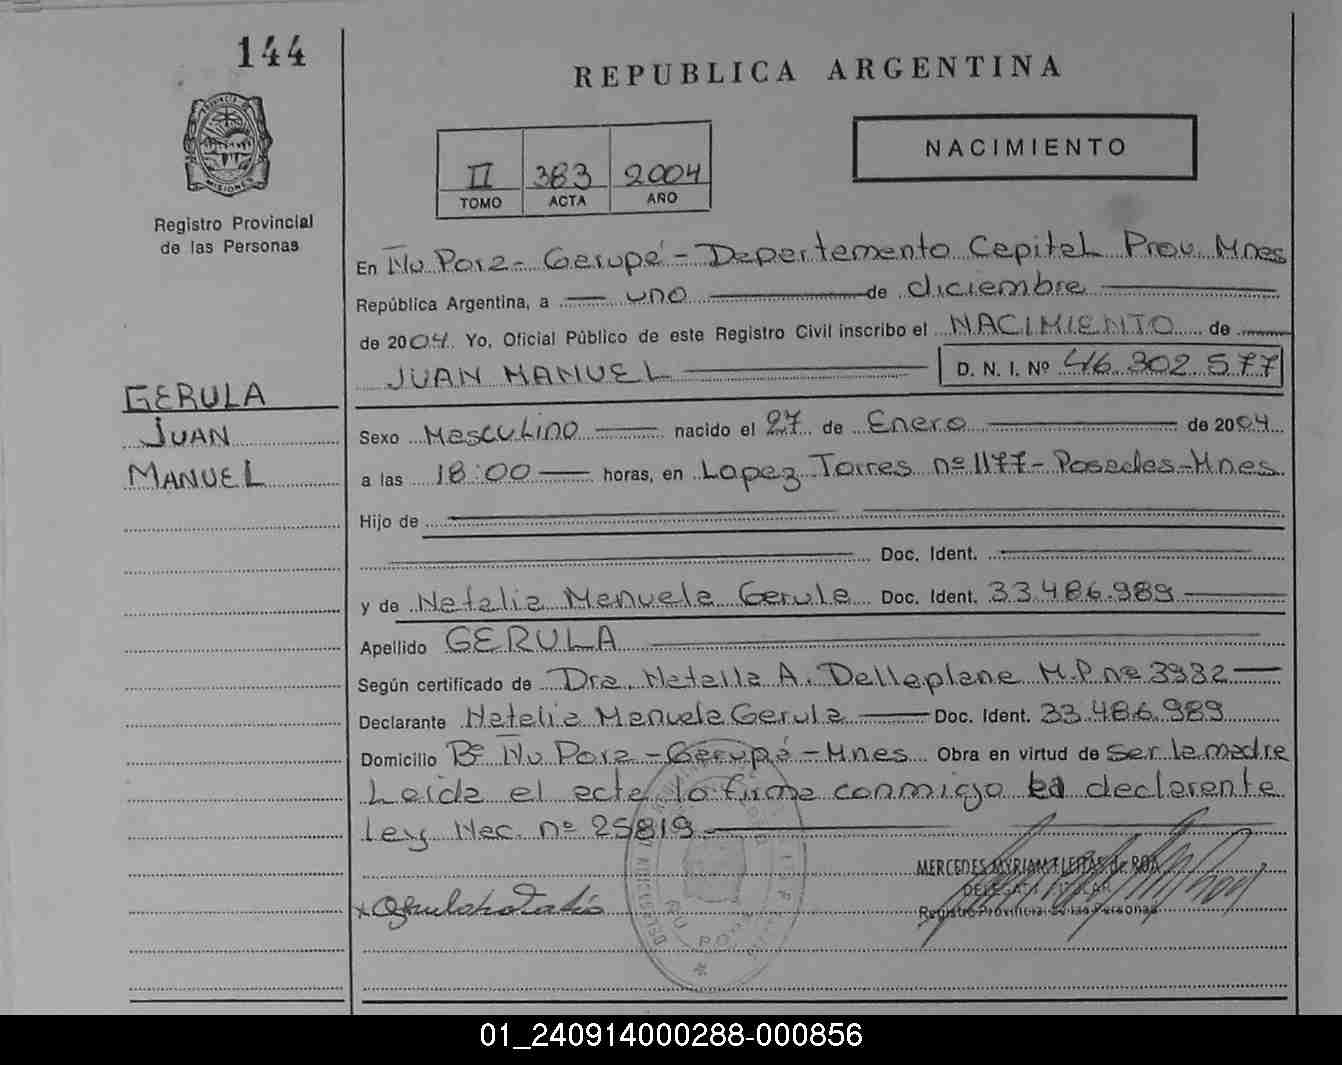 144
REPUBLICA ARGENTINA
PROVINCIA DE
MISIONES
Registro Provincial
de las Personas
II 383 2004
TOMO ACTA AÑO
NACIMIENTO
En Ñu Porá - Garupá - Departamento Capital Prov. Mnes
República Argentina, a uno de diciembre
de 2004 Yo, Oficial Público de este Registro Civil inscribo el NACIMIENTO de
JUAN MANUEL D. N. I. Nº 46.302.577
GERULA
JUAN
MANUEL
Sexo Masculino nacido el 27 de Enero de 2004
a las 18:00 horas, en Lopez Torres nº 1177 - Posadas - Mnes.
Hijo de
Doc. Ident.
y de Natalia Manuela Gerula Doc. Ident. 33.486.989
Apellido GERULA
Según certificado de Dra. Natalia A. Dellaplane M.P. nº 3932
Declarante Natalia Manuela Gerula Doc. Ident. 33.486.989
Domicilio Bº Ñu Porá - Garupá - Mnes. Obra en virtud de ser la madre
Leída el acta, la firma conmigo la declarante
Ley Nac. nº 25819
MERCEDES MYRIAM FLEITAS de ROA
DELEGADA TITULAR
Registro Provincial de las Personas
01_240914000288-000856